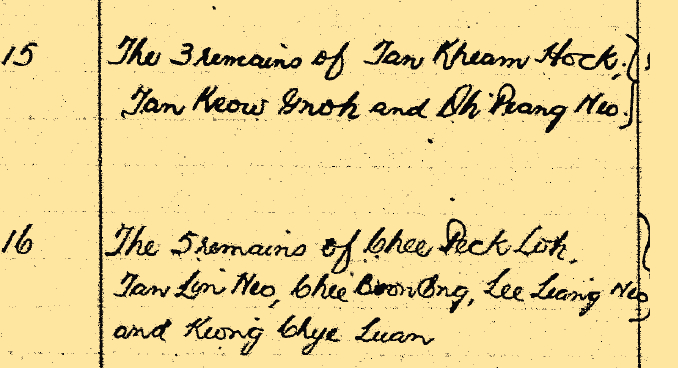 15 The 3 remains of Tan Kheam Hock,
Tan Keow Gnoh and Oh Peang Neo.
16 The 5 remains of Chee Peck Loh,
Tan Lin Neo, Chee Boon Eng, Lee Liang Neo
and Keong Chye Luan